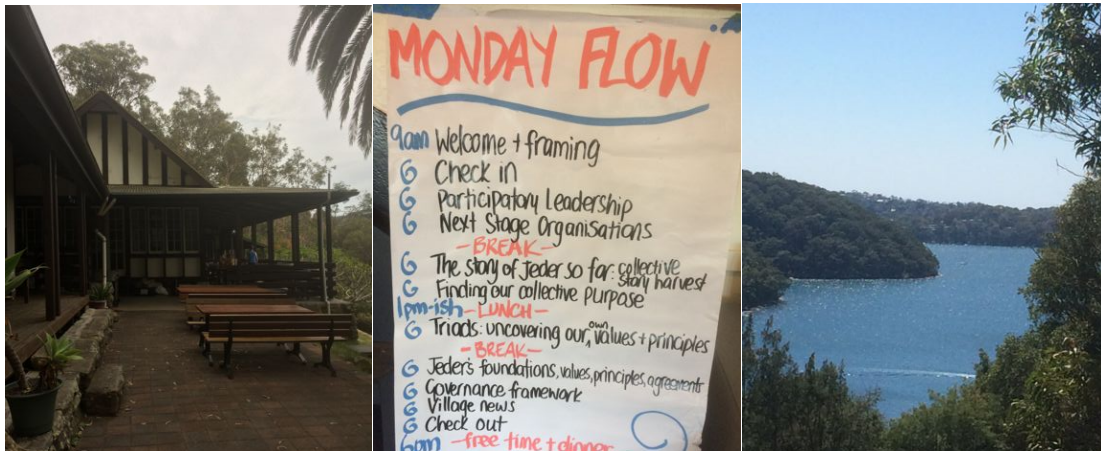 MONDAY FLOW
9am Welcome + framing
Check in
Participatory Leadership
Next Stage Organisations
- BREAK -
The story of Jeder so far: collective
story harvest
Finding our collective purpose
1pm-ish - LUNCH -
Triads: uncovering our, own values + principles
- BREAK -
Jeder's foundations, values, principles, agreements
Governance framework
Village news
Check out
6pm - free time + dinner